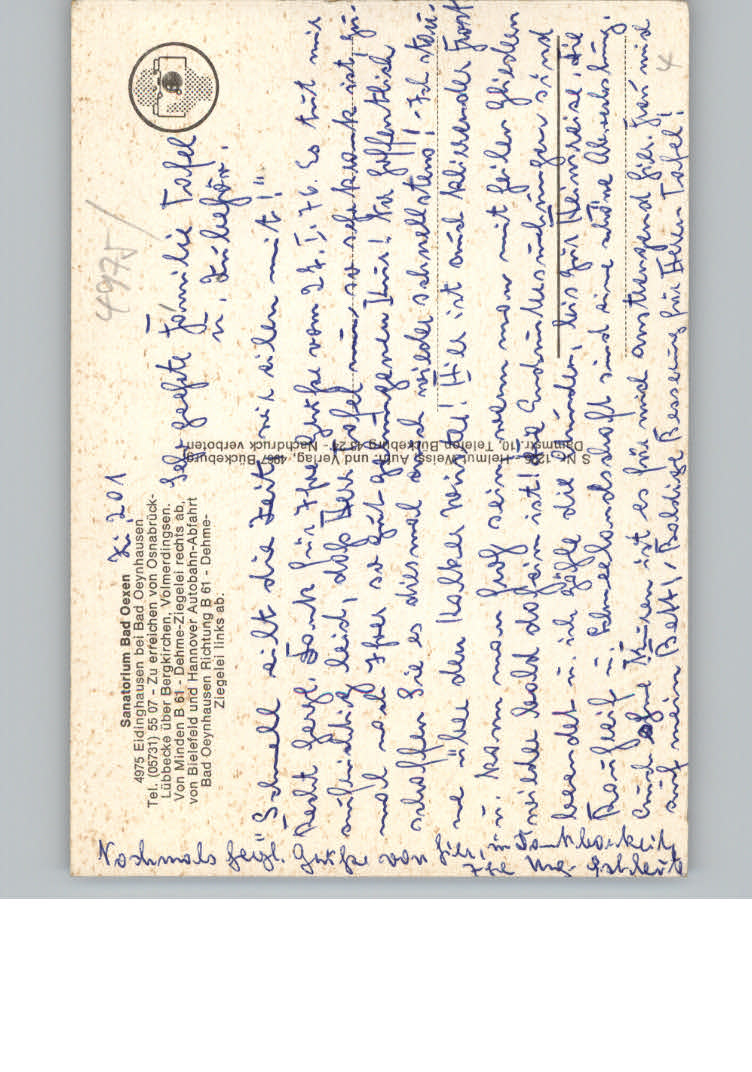 Sanatorium Bad Oexen
4975 Eidinghausen bei Bad Oeynhausen
Tel. (05731) 55 07 - Zu erreichen von Osnabrück-
Lübbecke über Bergkirchen, Volmerdingsen.
Von Minden B 61 - Dehme-Ziegelei rechts ab,
von Bielefeld und Hannover Autobahn-Abfahrt
Bad Oeynhausen Richtung B 61 - Dehme-
Ziegelei links ab.
Zi. 201
4975/
Sehr geehrte Familie Tafel
u. Zubehör.
"Schnell eilt die Zeit, wir eilen mit!"
Recht herzl. Dank für Ihre Grüße vom 24.1.76. Es tut mir
aufrichtig leid, daß Herr Tafel nun so sehr krank ist, zu-
mal nach Ihrer so gut gelungenen Kur! Na hoffentlich
schaffen Sie es diesmal auch wieder schnellstens! - Ich stau-
ne über den Kalker Winter! Hier ist auch klirrender Frost
u. kann man froh sein, wenn man mit heilen Gliedern
wieder bald daheim ist! Die Enduntersuchungen sind
beendet u. ich zähle die Stunden, bis zur Heimreise, die
Rauhreif u. Schneelandschaft sind eine schöne Abwechslung.
Auch ohne Kuren ist es für mich anstrengend hier. Freu mich
auf mein Bett! Baldige Besserung für Herrn Tafel!
Nochmals herzl. Grüße von hier, in Dankbarkeit,
Ihre
S Nr. 1235 - Helmut Weiss, Aufn. und Verlag, 4967 Bückeburg
Dammstr. 10, Telefon Bückeburg - Nachdruck verboten